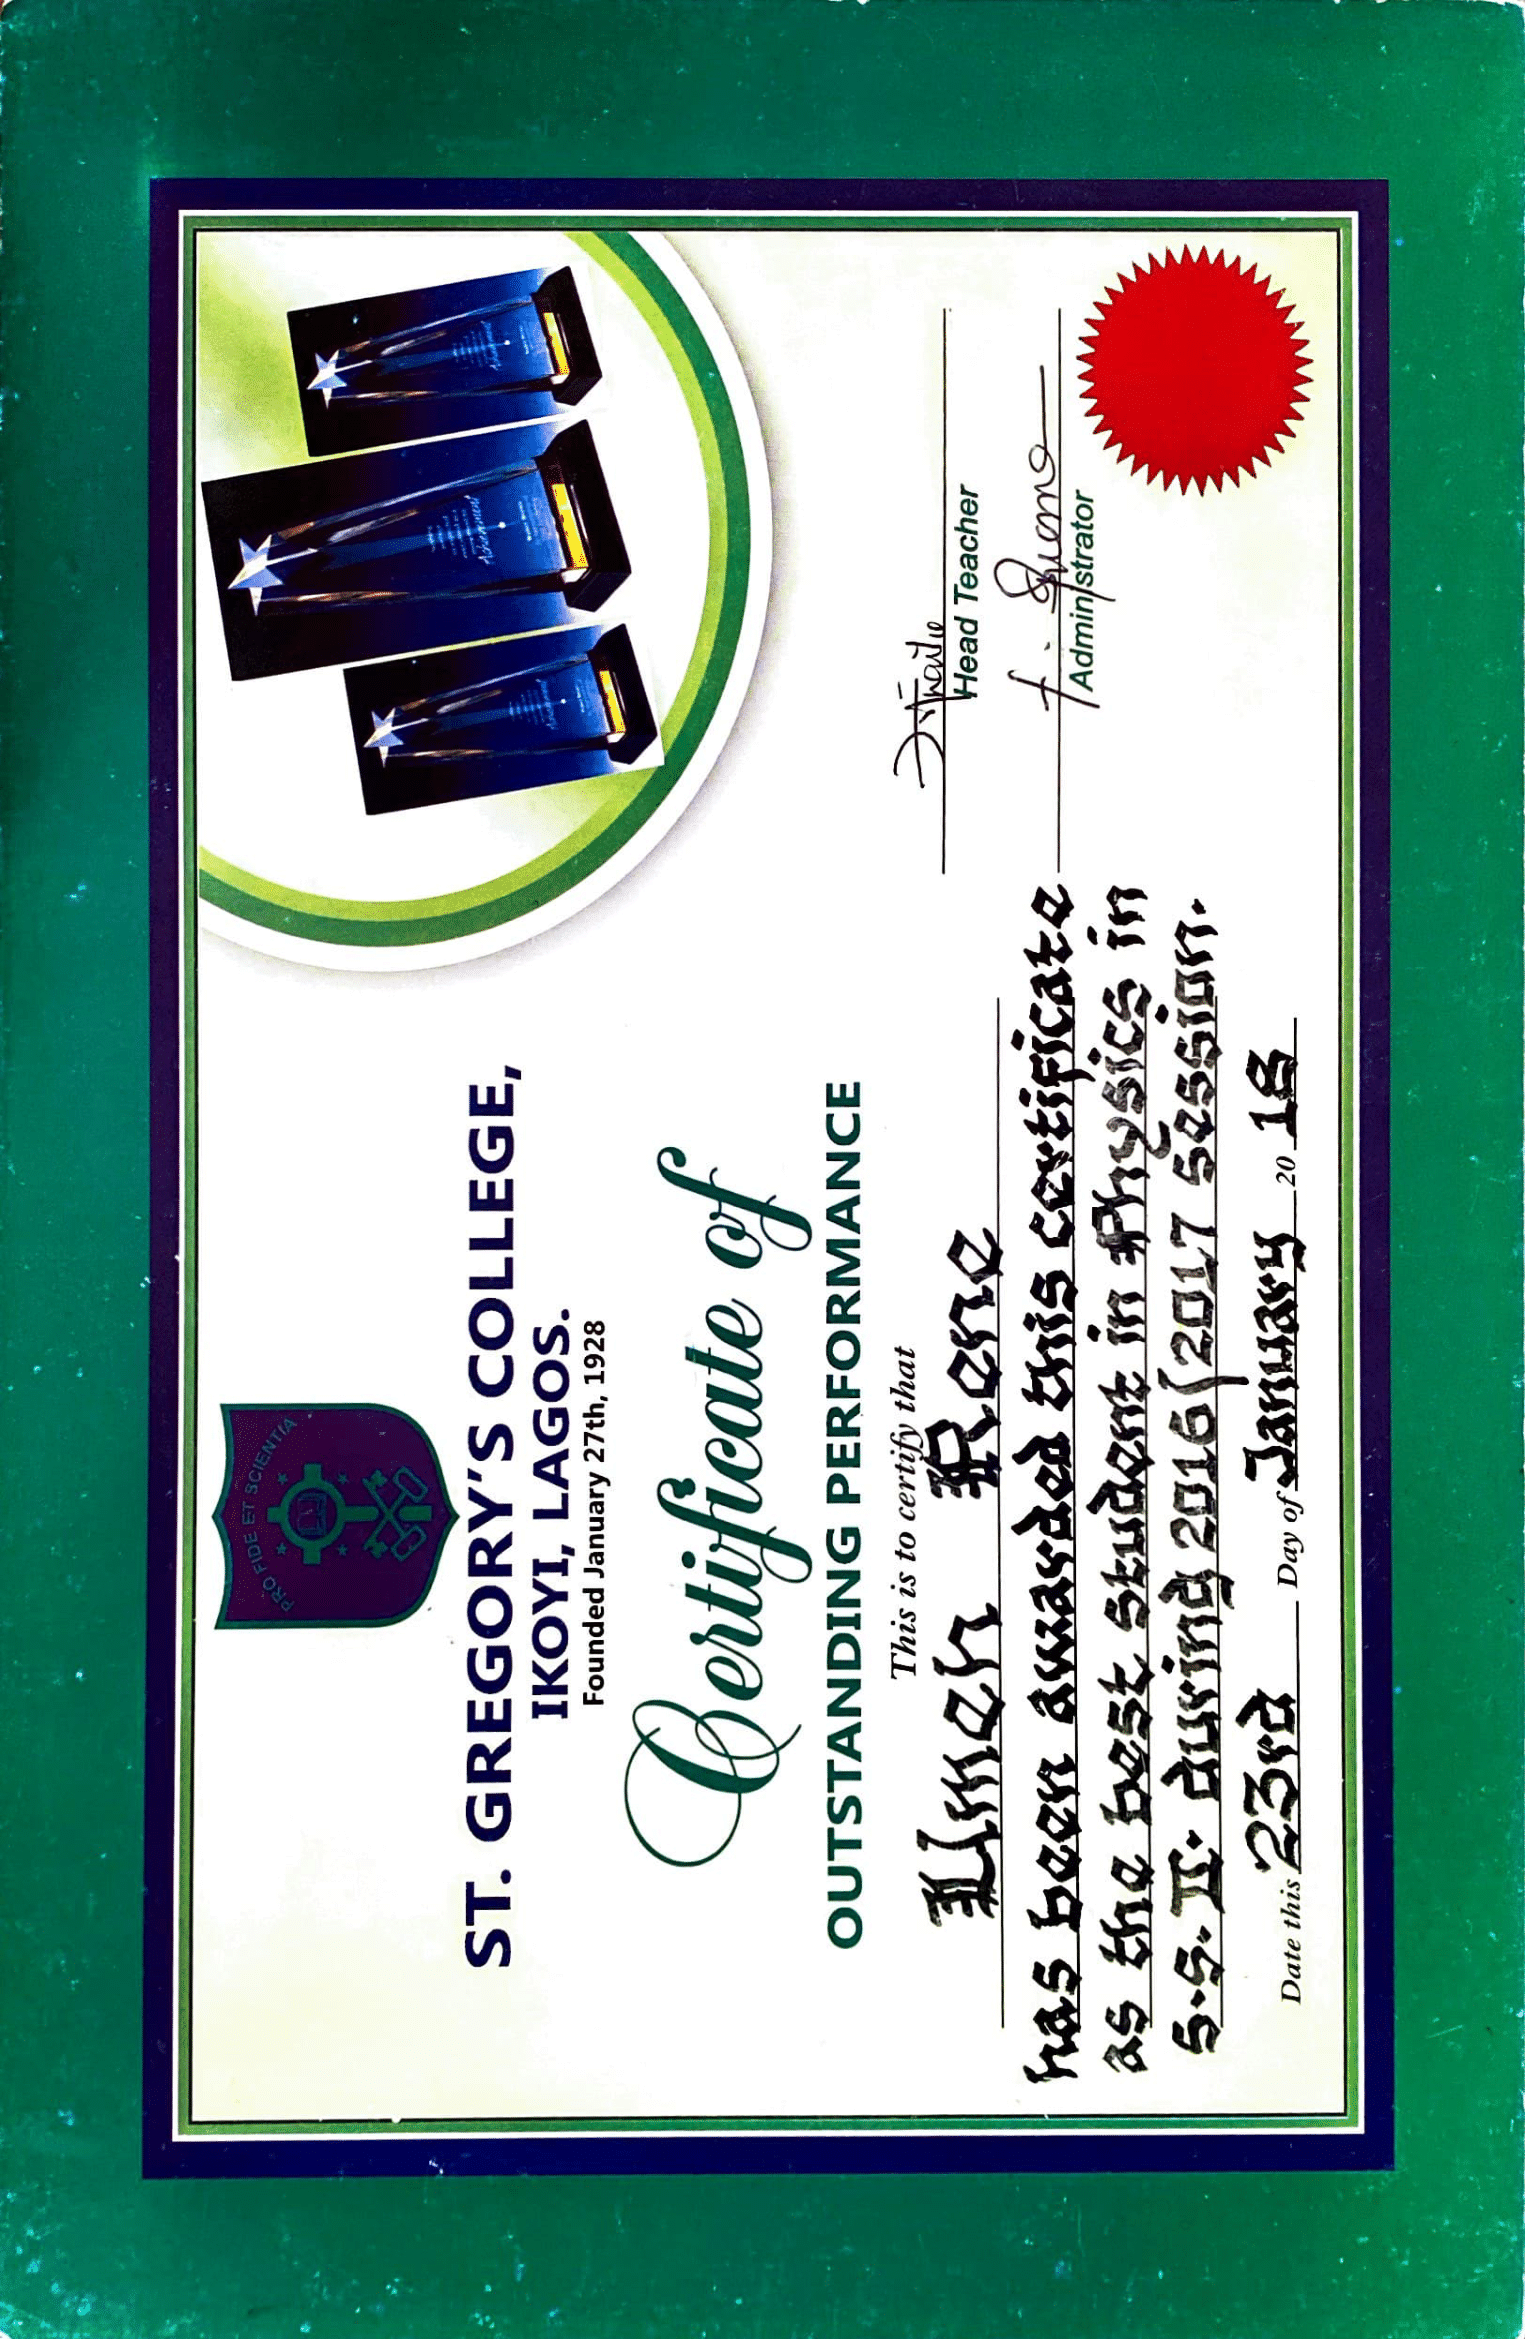 PRO FIDE ET SCIENTIA
ST. GREGORY'S COLLEGE,
IKOYI, LAGOS.
Founded January 27th, 1928
Certificate of
OUTSTANDING PERFORMANCE
This is to certify that
Umeh Rene
has been awarded this certificate
as the best student in Physics in
S.S. II. during 2016/2017 session.
Date this 23rd Day of January 20 18
Head Teacher
Administrator